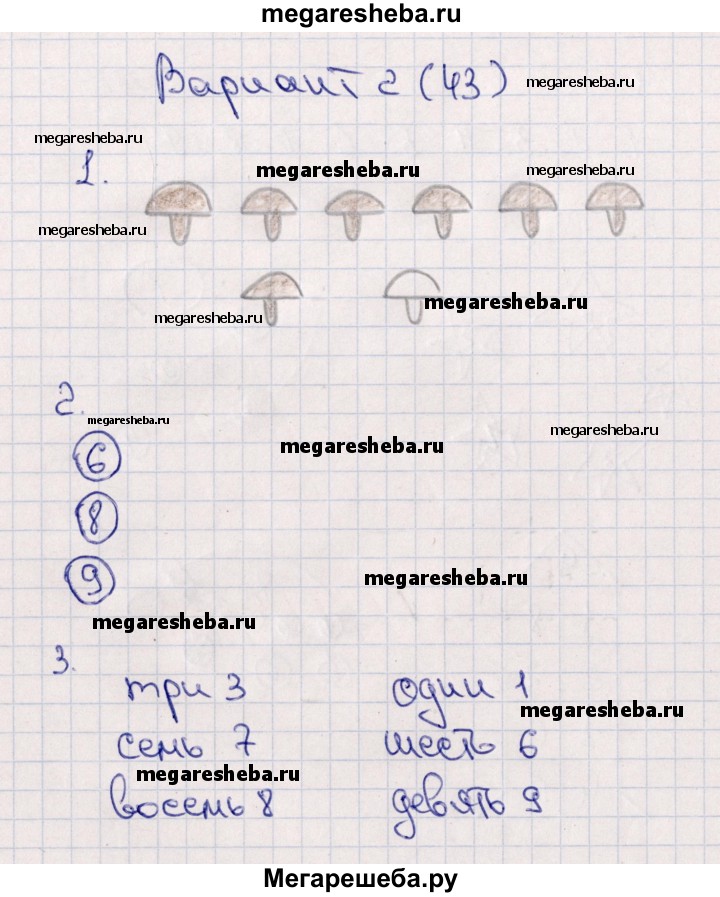 megaresheba.ru
Вариант 2 (43) megaresheba.ru
megaresheba.ru
1. megaresheba.ru megaresheba.ru
megaresheba.ru
megaresheba.ru megaresheba.ru
2.
megaresheba.ru megaresheba.ru
6 megaresheba.ru
8
9 megaresheba.ru
megaresheba.ru
3.
три 3 один 1
megaresheba.ru
семь 7 шесть 6
megaresheba.ru
восемь 8 девять 9
Мегарешеба.ру